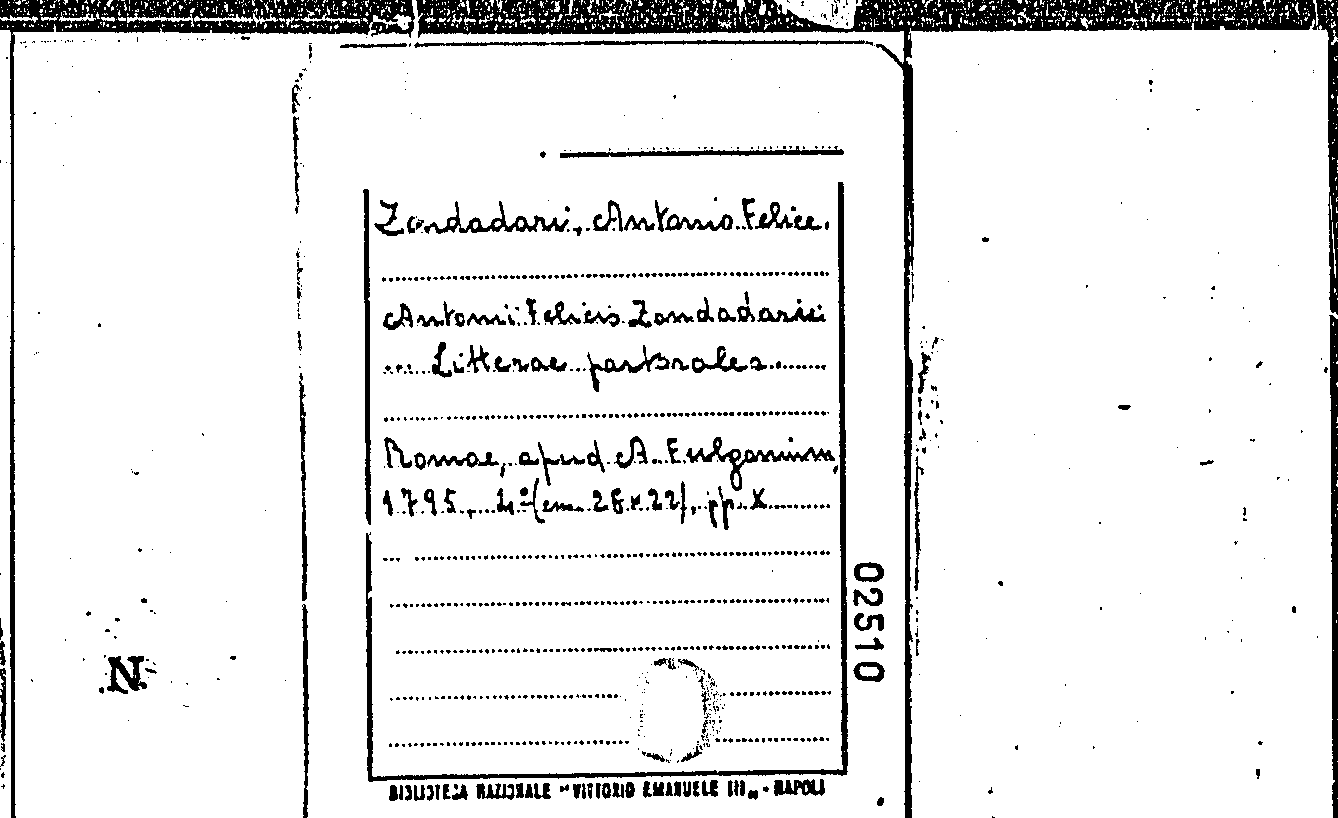 Zondadari, Antonio Felice.
Antonii Felicis Zondadarii
... Litterae pastorales.
Romae, apud A. Fulgonium,
1795, 4º (cm. 28×22), pp. X
02510
N
BIBLIOTECA NAZIONALE "VITTORIO EMANUELE III„ - NAPOLI